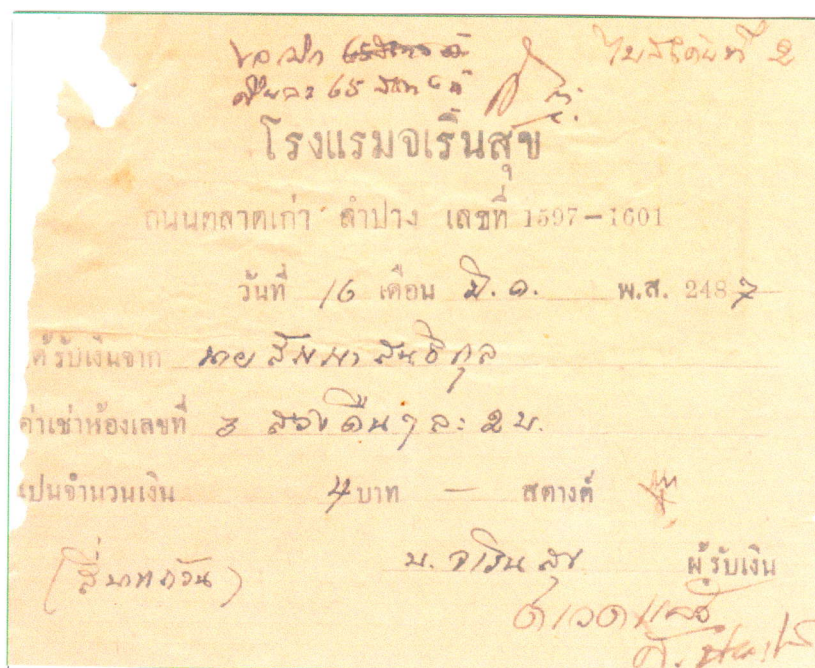 ใบสำคัญที่ 2
ขอเบิก
คืนละ 65 สตางค์
โรงแรมจเริ้นสุข
ถนนตลาดเก่า ลำปาง เลขที่ 1597-1601
วันที่ 16 เดือน มี.ค. พ.ส. 2487
ได้รับเงินจาก นาย สัมมา สนธิกุล
ค่าเช่าห้องเลขที่ 3 สองคืนๆละ 2 บ.
เปนจำนวนเงิน 4 บาท — สตางค์
(สี่บาทถ้วน) บ. จเรินสุข ผู้รับเงิน
ตรวจแล้ว